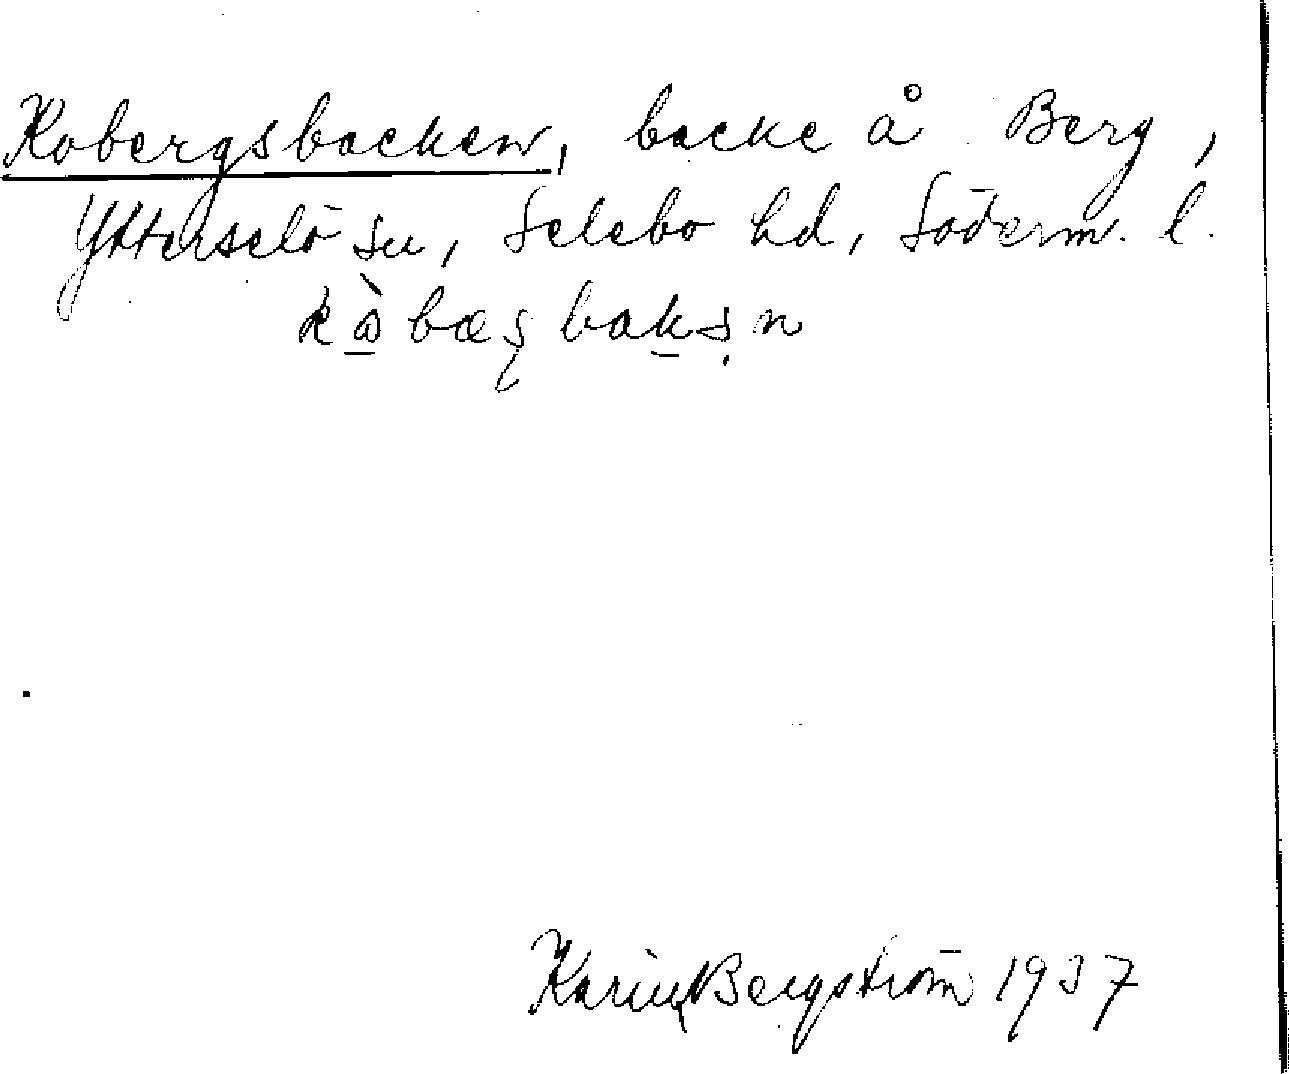 Kobergsbacken, backe å Berg,
Ytterselö sn, Selebo hd, Söderm. l.
Karin Bergström 1937